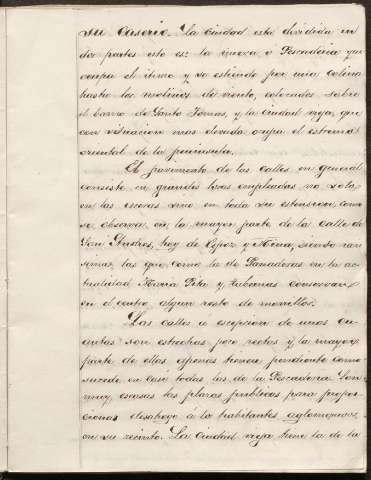 su caserio. La Ciudad esta dividida en
dos partes esto es: la nueva o Pescaderia que
ocupa el itsmo y se estiende por una colina
hasta los molinos de viento, colocados sobre
el barrio de Santo Tomas, y la ciudad vieja, que
con situacion mas elevada ocupa el estremo
oriental de la peninsula.
El pavimento de las calles en general
consiste en grandes losas empleadas no solo
en las aceras sino en toda su estension como
se observa en la mayor parte de la calle de
San Andres, hoy de Espoz y Mina, siendo rari-
simas las que como la de Panaderas en la ac-
tualidad Maria Pita y Tabernas conservan
en el centro algun resto de morrillos.
Las calles a escepcion de unas cu-
antas son estrechas poco rectas y la mayor
parte de ellas apenas tienen pendiente como
sucede en casi todas las de la Pescaderia. Son
muy escasas las plazas publicas para propor-
cionar desahogo a los habitantes aglomerados
en su recinto. La Ciudad vieja tiene la de la